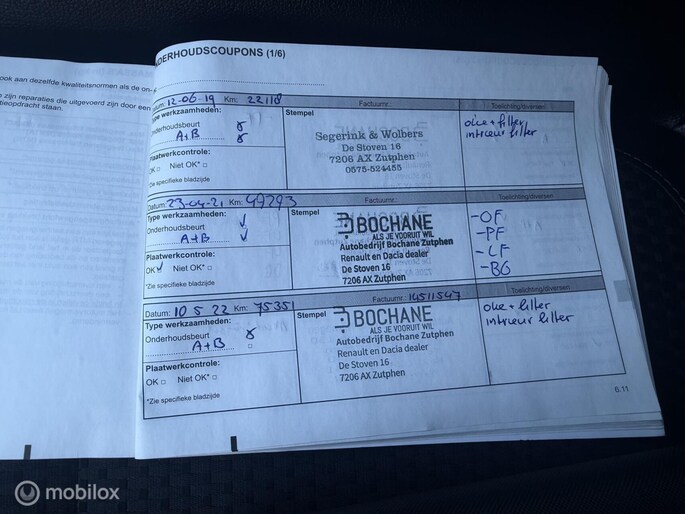 NDERHOUDSCOUPONS (1/6)
ook aan dezelfde kwaliteitsnormen als de on-
zijn reparaties die uitgevoerd zijn door een
tieopdracht staan.
Datum: 12-06-19 Km: 22118 Factuurnr.: Toelichting/diversen
Type werkzaamheden:
Onderhoudsbeurt
A+B
Plaatwerkcontrole:
OK Niet OK*
*Zie specifieke bladzijde
Stempel
Segerink & Wolbers
De Stoven 16
7206 AX Zutphen
0575-524455
olie + filter
interieur filter
Datum: 23-04-21 Km: 49293 Factuurnr.: Toelichting/diversen
Type werkzaamheden:
Onderhoudsbeurt
A+B
Plaatwerkcontrole:
OK Niet OK*
*Zie specifieke bladzijde
Stempel
BOCHANE
ALS JE VOORUIT WIL
Autobedrijf Bochane Zutphen
Renault en Dacia dealer
De Stoven 16
7206 AX Zutphen
-OF
-PF
-LF
-BG
Datum: 10 5 22 Km: 75351 Factuurnr.: 14511547 Toelichting/diversen
Type werkzaamheden:
Onderhoudsbeurt
A+B
Plaatwerkcontrole:
OK Niet OK*
*Zie specifieke bladzijde
Stempel
BOCHANE
ALS JE VOORUIT WIL
Autobedrijf Bochane Zutphen
Renault en Dacia dealer
De Stoven 16
7206 AX Zutphen
olie + filter
interieur filter
6.11
mobilox